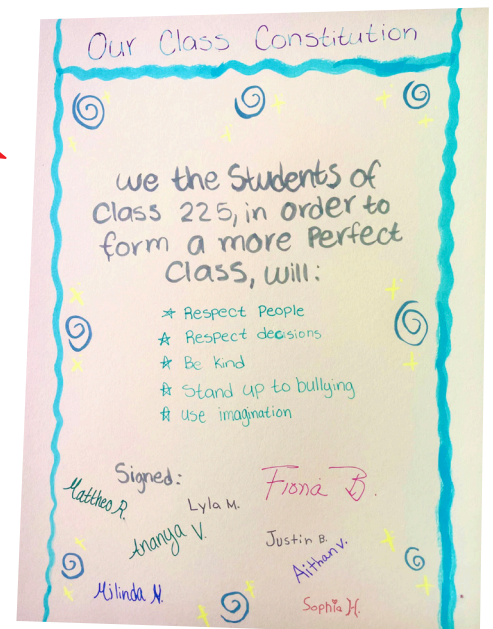 Our Class Constitution
We the Students of
Class 225, in order to
form a more Perfect
Class, will:
Respect People
Respect decisions
Be kind
Stand up to bullying
use imagination
Signed:
Mattheo R.
Fiona B.
Lyla M.
Ananya V.
Justin B.
Aithan V.
Milinda N.
Sophia H.